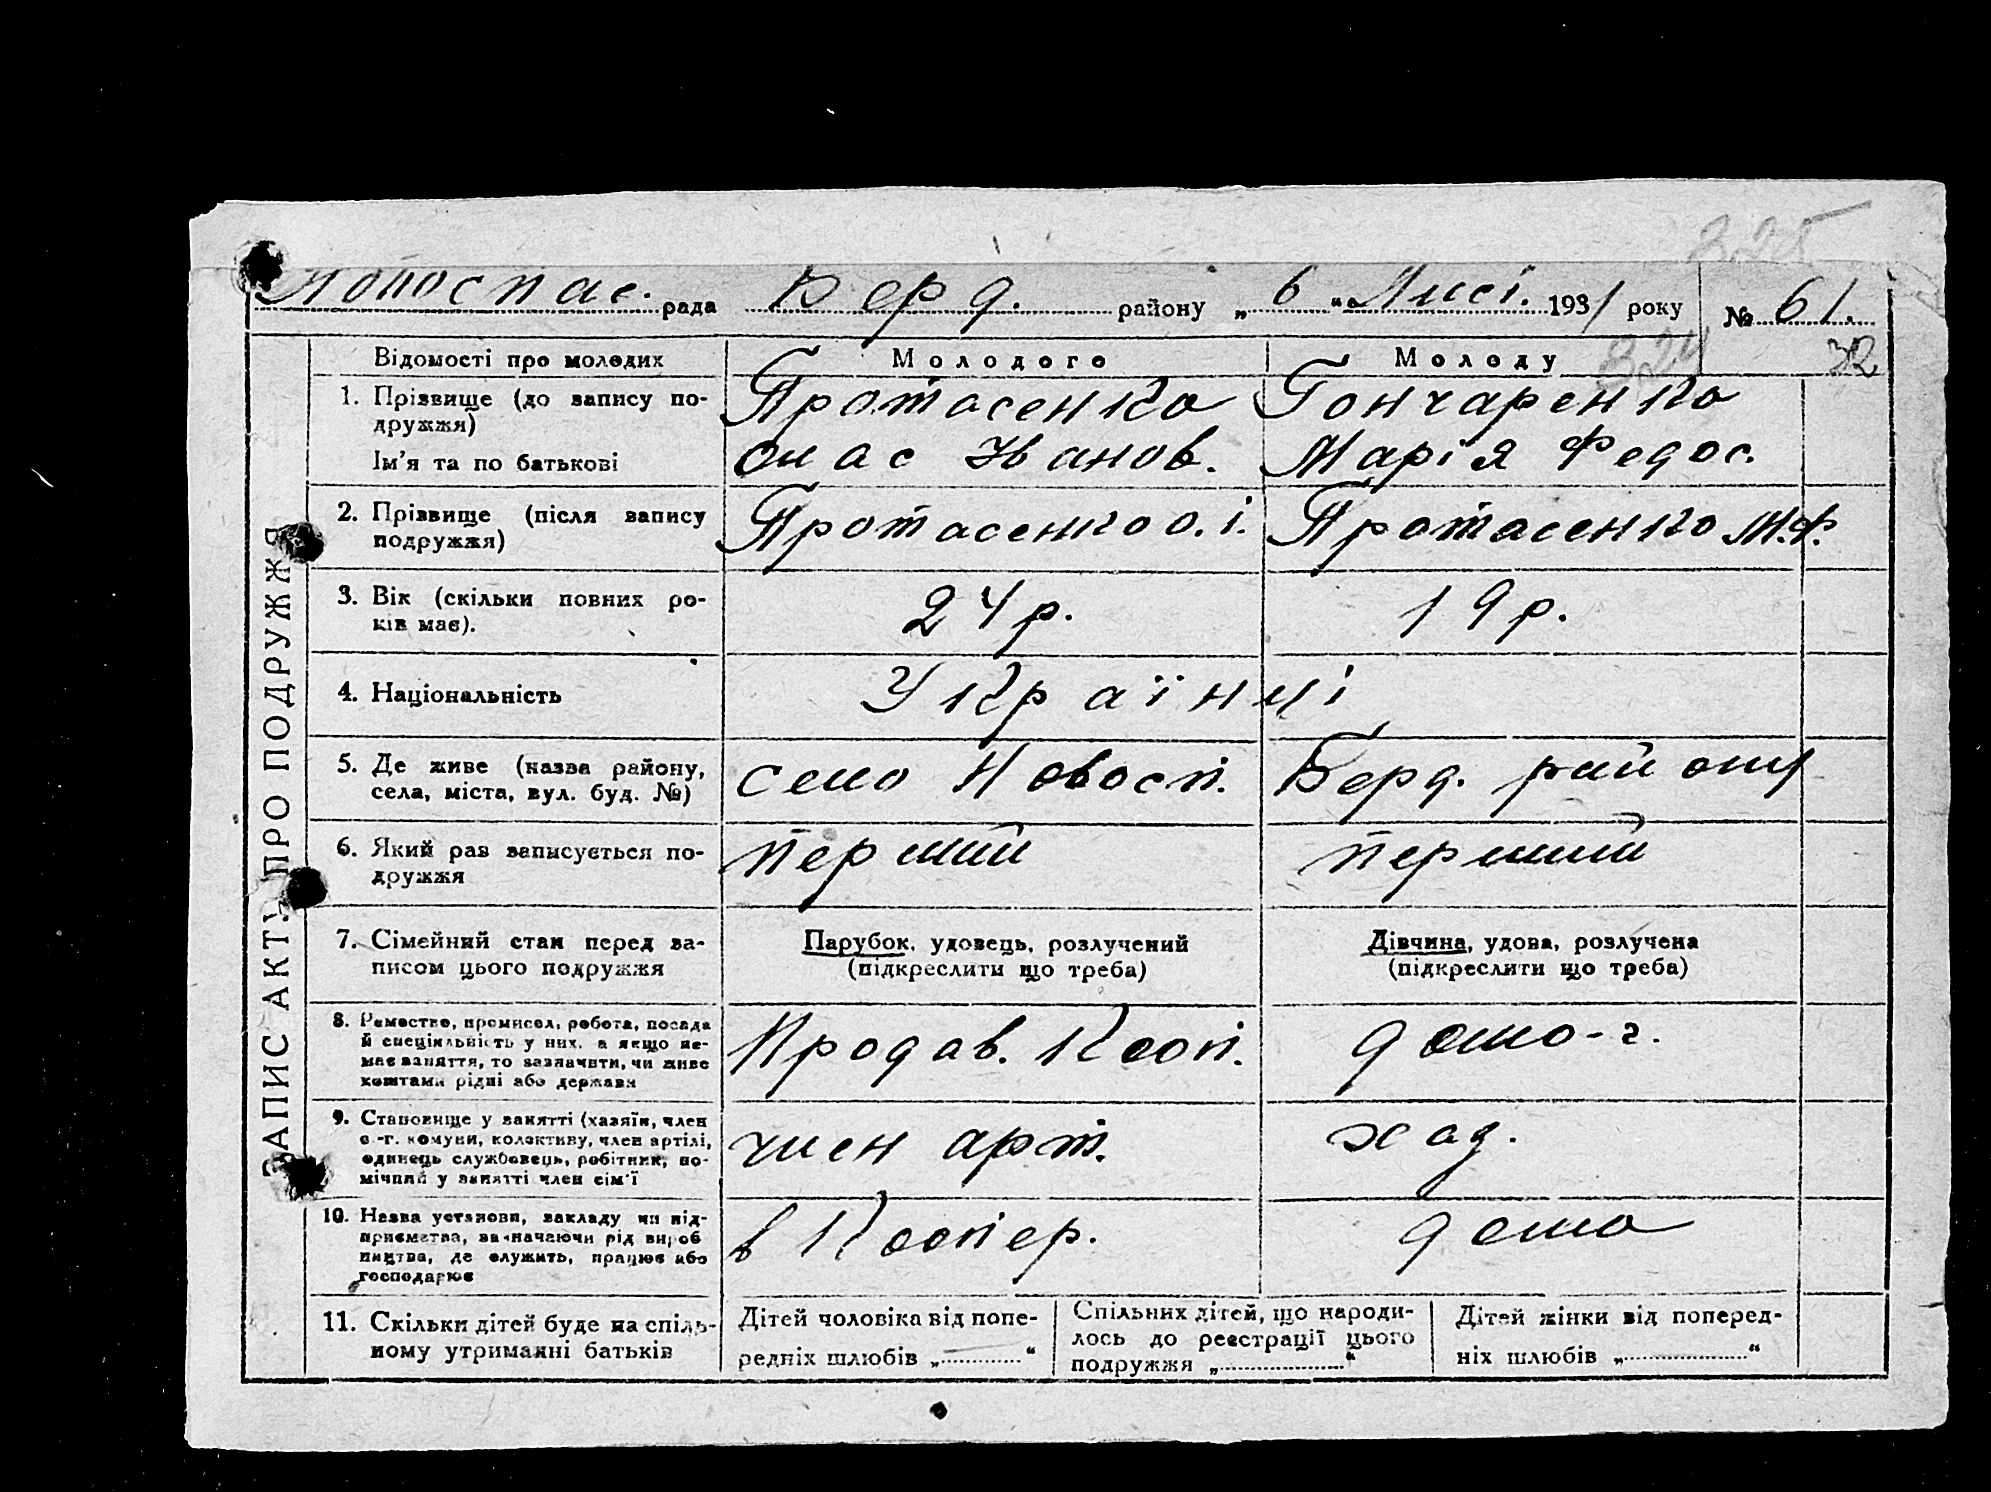 325
Новоспас. рада Берд. району „6“ Лист. 1931 року № 61.
324 32
ЗАПИС АКТУ ПРО ПОДРУЖЖЯ
Відомості про молодих Молодого Молоду
1. Прізвище (до запису по- Протасенко Гончаренко
дружжя)
Ім'я та по батькові Опас Іванов. Марія Федос.
2. Прізвище (після запису Протасенко О. І. Протасенко М.Ф.
подружжя)
3. Вік (скільки повних ро- 24 р. 19 р.
ків має).
4. Національність Українці
5. Де живе (назва району, село Новосп. Берд. району
села, міста, вул. буд. №)
6. Який раз записується по- перший перший
дружжя
7. Сімейний стан перед за- Парубок, удовець, розлучений Дівчина, удова, розлучена
писом цього подружжя (підкреслити що треба) (підкреслити що треба)
8. Ремество, промисел, робота, посада
й спеціяльність у них, а якщо не- Продав. Кооп. домо-г.
має заняття, то зазначити, чи живе
коштами рідні або держави
9. Становище у занятті (хазяїн, член
с.-г. комуни, колективу, член артілі, член арт.
одинець службовець, робітник, по-
мічний у занятті член сім'ї
10. Назва установи, закладу чи під-
приємства, зазначаючи рід вироб в Коопер. дома
ництва, де служить, працює або
господарює
11. Скільки дітей буде на спіль- Дітей чоловіка від попе- Спільних дітей, що народи- Дітей жінки від поперед-
ному утриманні батьків редніх шлюбів „ “ лось до реєстрації цього ніх шлюбів „ “
подружжя „ “